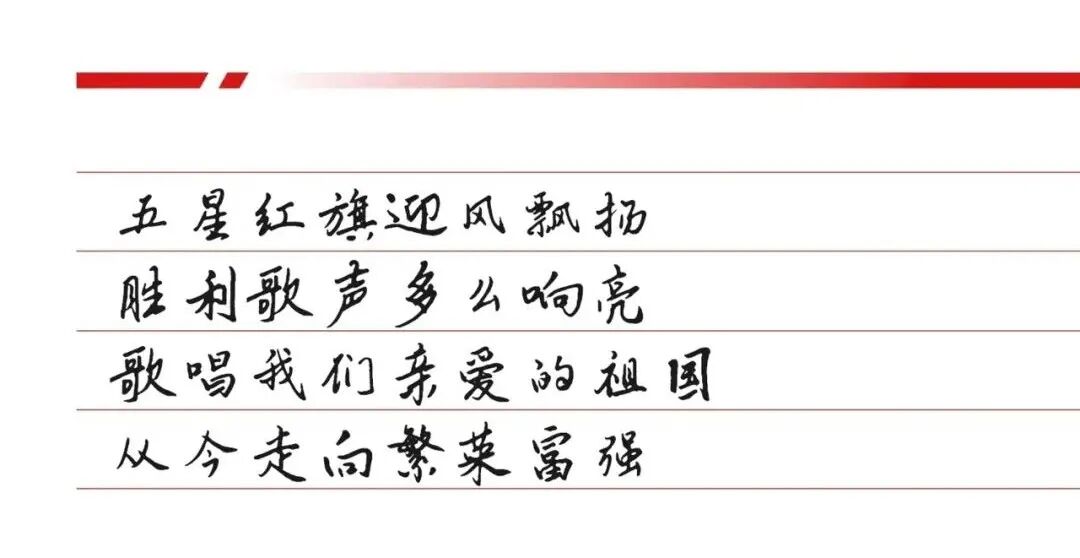 五星红旗迎风飘扬
胜利歌声多么响亮
歌唱我们亲爱的祖国
从今走向繁荣富强